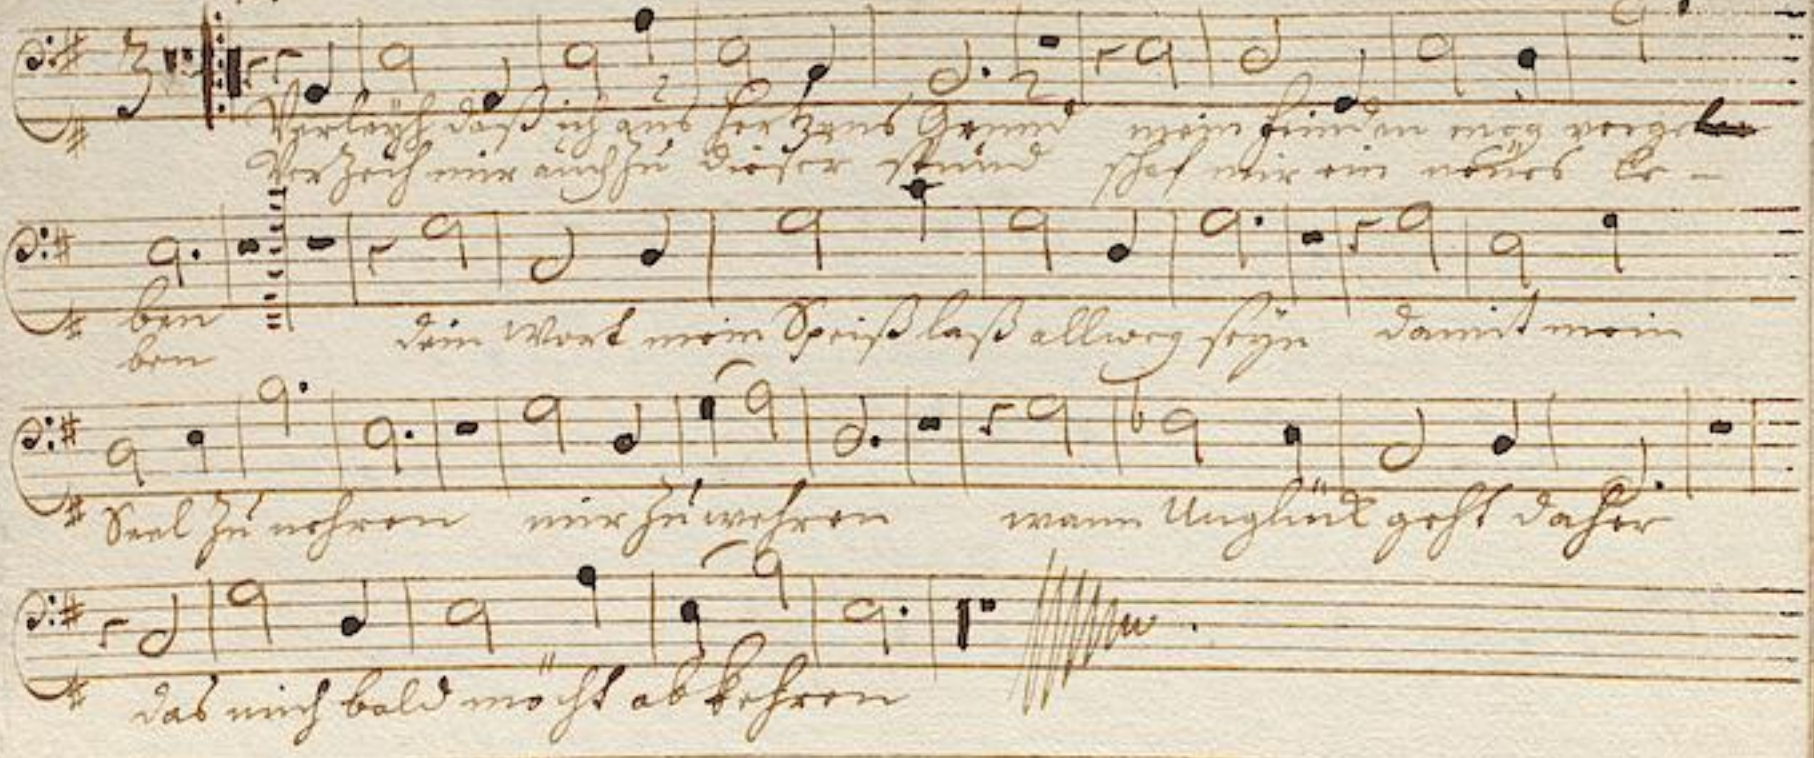 Verleyh daß ich aus Hertzens Grund mein Feinden mög verge
Verzeih mir auch zu dieser stund schaf mir ein neües Le-
ben dein Wort mein Speiß laß allweg seyn damit mein
ben
Seel zu nehren mir zu wehren wann Unglück geht daher
das mich bald möcht abkehren